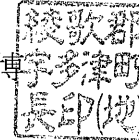 綾歌郡
宇多津町
長印